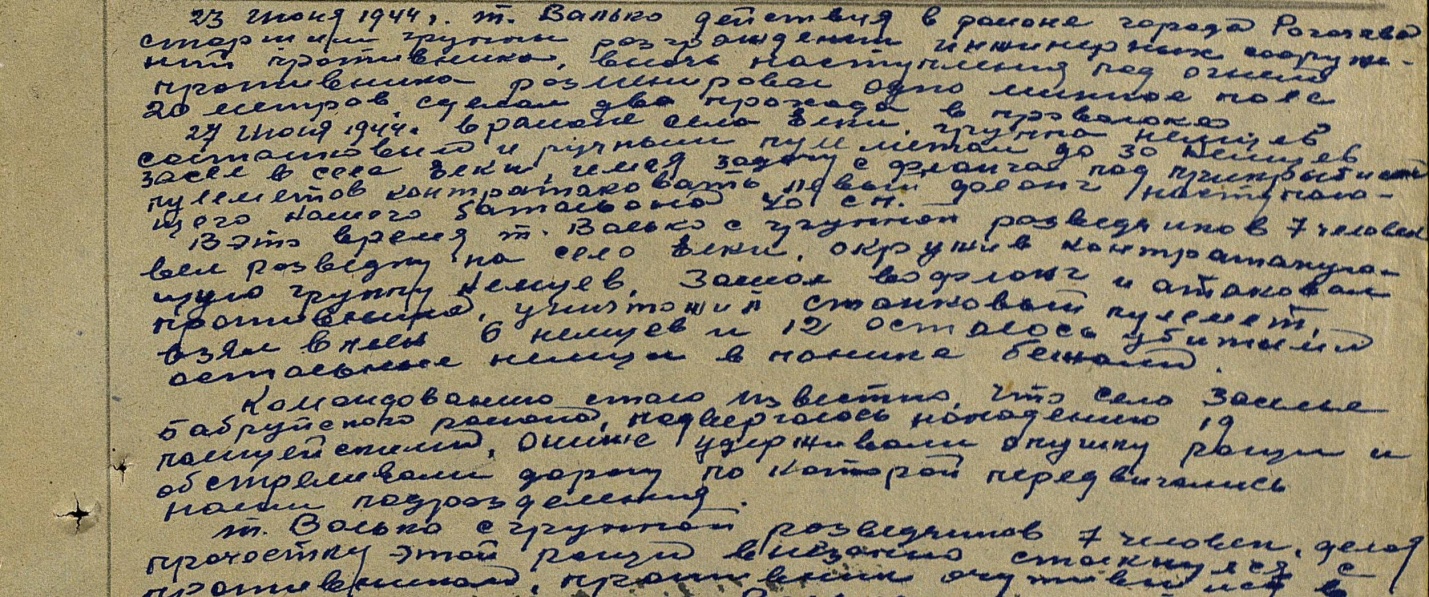 23 июня 1944г. т. Валько действуя в районе города Рогачева
старшим группы разграждении инжинерных сооруже-
ний противника, в ночь наступления под огнем
противника розминировал одно минное поле
20 метров, сделал два прохода в проволоке
24 июня 1944г. в районе села Веки, группа немцев
состанковый и ручным пулеметом до 30 немцев
засел в селе Веки, имея задачу с фланга под прикрытием
пулеметов контратаковать левый фланг наступаю-
щего нашего батальона 40 сп.
В это время т. Валько с группой розведчиков 7 человек
вел розведку на село Веки, окружив контратакую-
щую группу немцев. Зашел во фланг и атаковал
противника, уничтожил станковый пулемет,
взял в плен 6 немцев и 12 осталось убитыми
остальные немци в панике бежали.
Командованию стало известно, что село Заселье
Бабруйского района, подверглось нападению 19
полицейскими, они же удерживали опушку рощи и
обстреливали дорогу по которой передвигались
наши подразделения.
т. Валько с группой розведчиков 7 человек, делая
прочестку этой рощи внезапно столкнулся с
противником, противник очутившися в